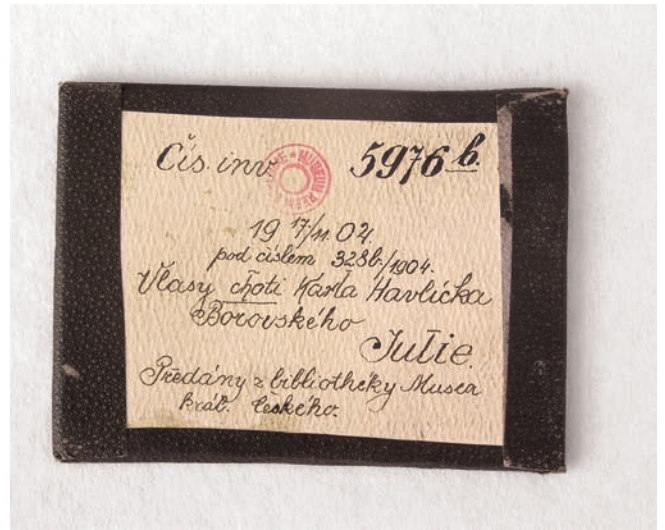 Čís. inv. 5976 b.
19 17/11. 04.
pod číslem 328b./1904.
Vlasy choti Karla Havlíčka
Borovského
Julie.
Předány z bibliothéky Musea
král. českého.